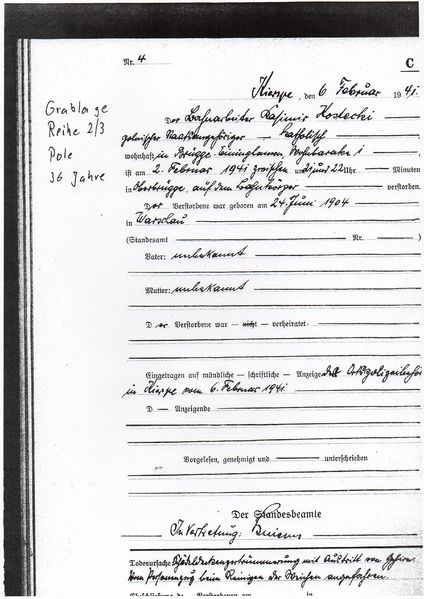 Nr. 4
C
Kierspe, den 6 Februar 1941.
Grablage
Reihe 2/3
Pole
36 Jahre
Der Bahnarbeiter Kasimir Kostecki
polnischer Staatsangehöriger – katholisch
wohnhaft in Brügge
ist am 2. Februar 1941 zwischen und 22 Uhr — Minuten
in Oberbrügge, auf dem Bahnkörper verstorben.
Der Verstorbene war geboren am 24. Juni 1904
in Warschau
(Standesamt Nr. )
Vater: unbekannt
Mutter: unbekannt
Der Verstorbene war — nicht — verheiratet
Eingetragen auf mündliche – schriftliche – Anzeige der Ortspolizeibehörde
in Kierspe vom 6. Februar 1941.
D — Anzeigende
Vorgelesen, genehmigt und unterschrieben
Der Standesbeamte
In Vertretung:
Todesursache: Schädeldeckenzertrümmerung mit Austritt von Gehirn.
Vom Personenzug beim Reinigen der Weichen angefahren